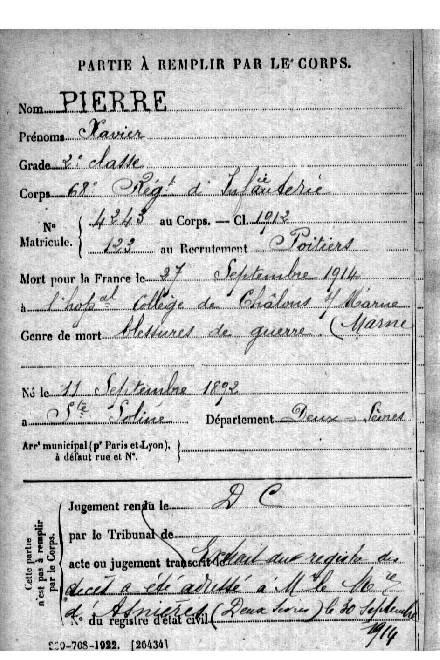 PARTIE À REMPLIR PAR LE CORPS.
Nom PIERRE
Prénoms Xavier
Grade 2e classe
Corps 68e Régt d'Infanterie
No Matricule. { 4343 au Corps. — Cl. 1912
123 au Recrutement Poitiers
Mort pour la France le 27 Septembre 1914
à l'hopal Collège de Châlons s/ Marne
Genre de mort blessures de guerre. (Marne
Né le 11 Septembre 1892
a Ste Soline Département Deux-Sèvres
Arrt municipal (pr Paris et Lyon), à défaut rue et No.
Cette partie n'est pas à remplir par le Corps.
Jugement rendu le D C
par le Tribunal de
acte ou jugement transcrit le Extrait du registre des
décès a été adressé à Mr le Mre
d'Asnières (Deux Sèvres) le 30 Septembre
No du registre d'état civil 1914
770-708-1922. [26434]